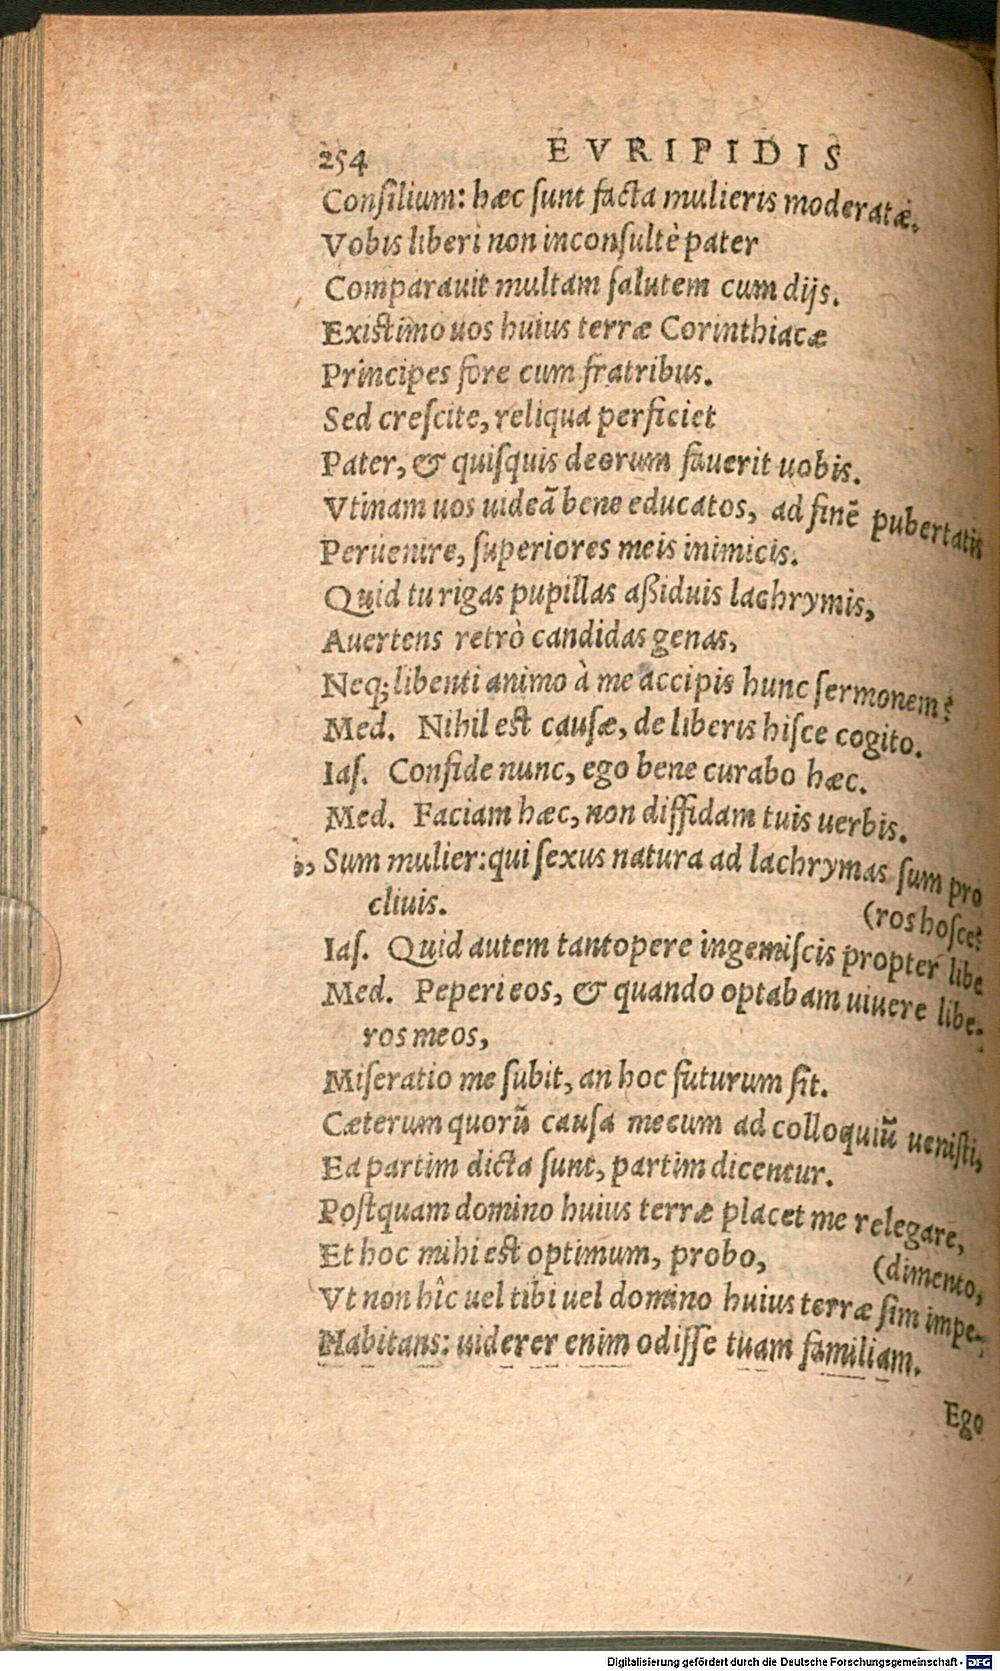 254 EVRIPIDIS
Consilium: hæc sunt facta mulieris moderatæ.
Vobis liberi non inconsultè pater
Comparauit multam salutem cum dijs.
Existimo uos huius terræ Corinthiacæ
Principes fore cum fratribus.
Sed crescite, reliqua perficiet
Pater, & quisquis deorum fauerit uobis.
Vtinam uos uideā bene educatos, ad finē pubertatis
Peruenire, superiores meis inimicis.
Quid tu rigas pupillas aßiduis lachrymis,
Auertens retrò candidas genas,
Neq; libenti animo à me accipis hunc sermonem?
Med. Nihil est causæ, de liberis hisce cogito.
Ias. Confide nunc, ego bene curabo hæc.
Med. Faciam hæc, non diffidam tuis uerbis.
Sum mulier: qui sexus natura ad lachrymas sum pro
cliuis. (ros hosce?
Ias. Quid autem tantopere ingemiscis propter libe
Med. Peperi eos, & quando optabam uiuere libe-
ros meos,
Miseratio me subit, an hoc futurum sit.
Cæterum quorū causa mecum ad colloquiū uenisti,
Ea partim dicta sunt, partim dicentur.
Postquam domino huius terræ placet me relegare,
Et hoc mihi est optimum, probo, (dimento,
Vt non hîc uel tibi uel domino huius terræ sim impe-
Habitans: uiderer enim odisse tuam familiam.
Ego
Digitalisierung gefördert durch die Deutsche Forschungsgemeinschaft - DFG